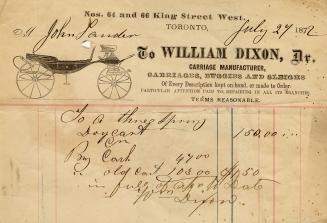 Nos. 64 and 66 King Street West.
TORONTO, July 27 1872
M John Pander
To WILLIAM DIXON, Dr.
CARRIAGE MANUFACTURER,
CARRIAGES, BUGGIES AND SLEIGHS
Of Every Description kept on hand, or made to Order.
PARTICULAR ATTENTION PAID TO REPAIRING IN ALL ITS BRANCHES.
TERMS REASONABLE.
To a three spring
Dogcart 150.00
Cr
By Cash 47.00
" old cart 103.00
in full
Dixon